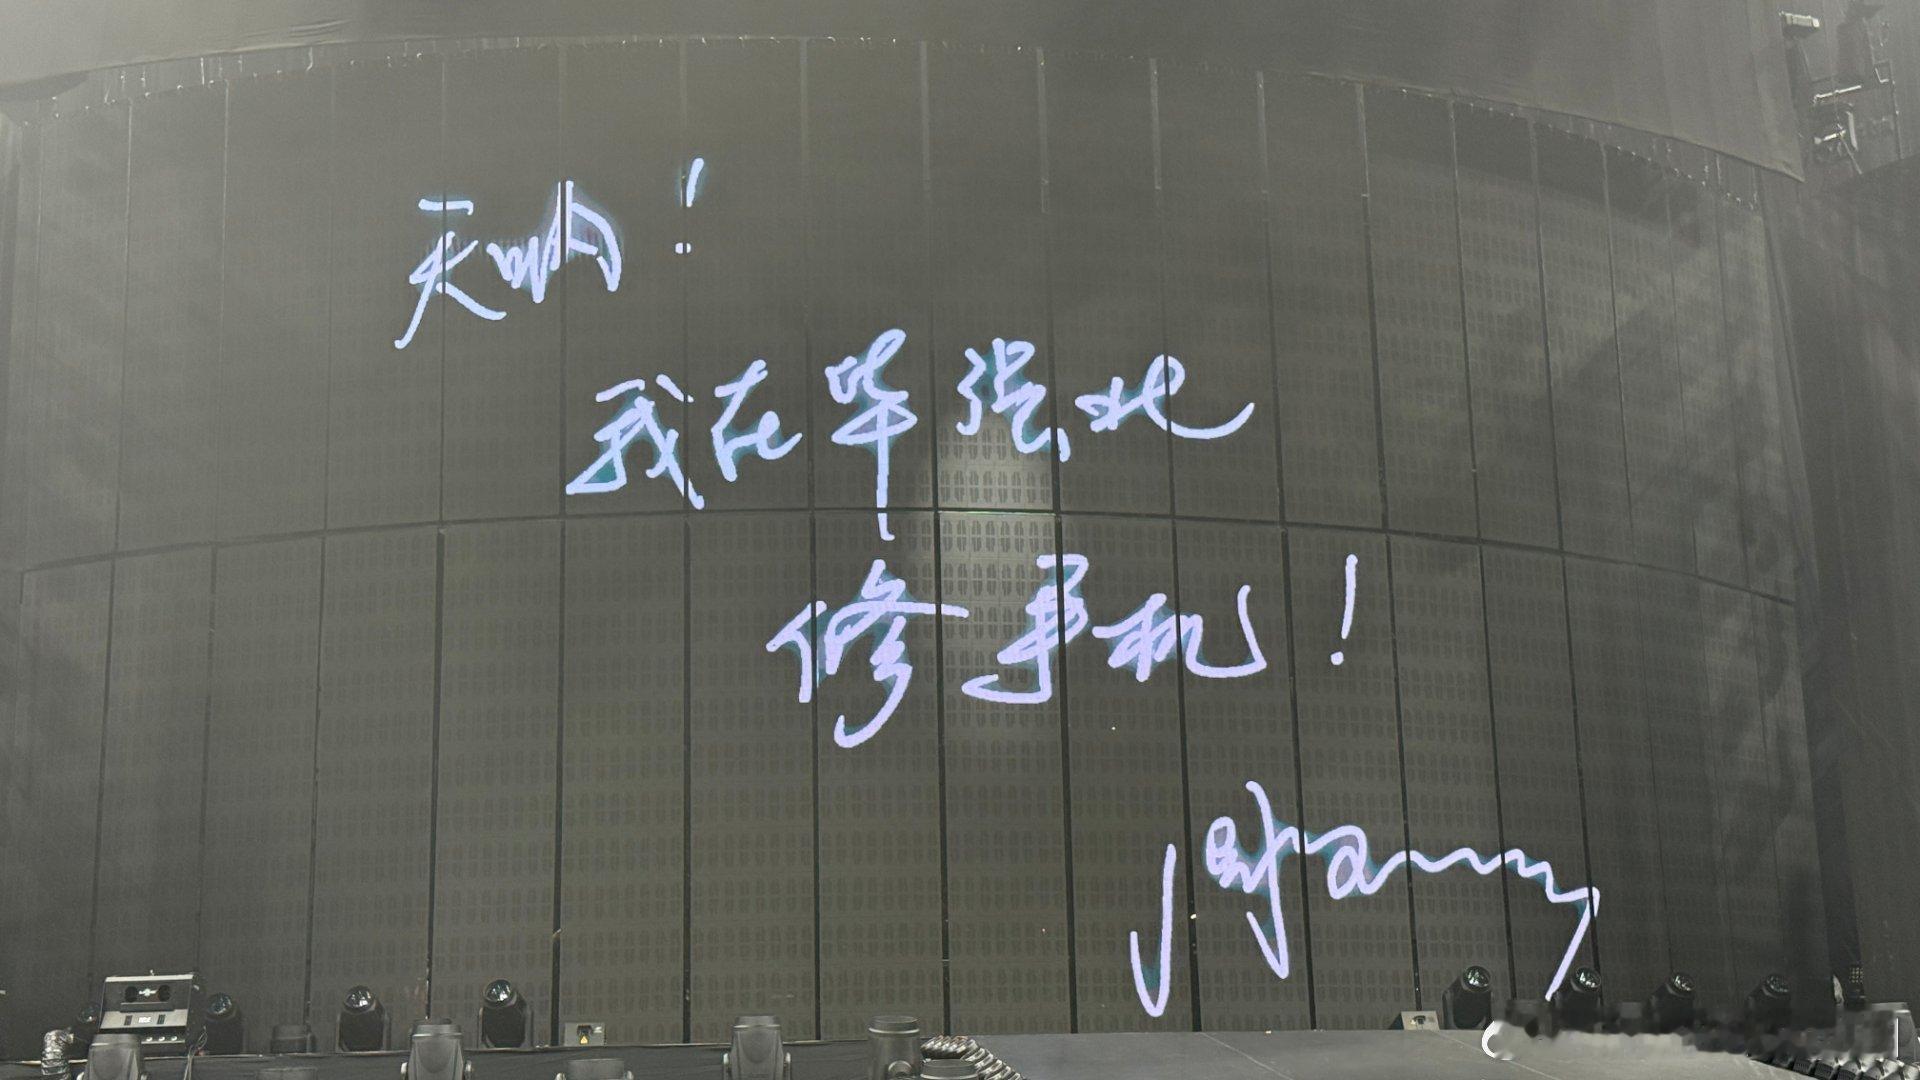 天呐！
我在华强北
修手机！